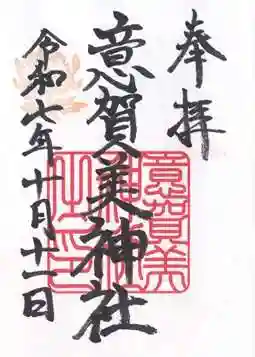 奉拝
意賀美神社
令和七年十月十一日
意賀美
神社
之印